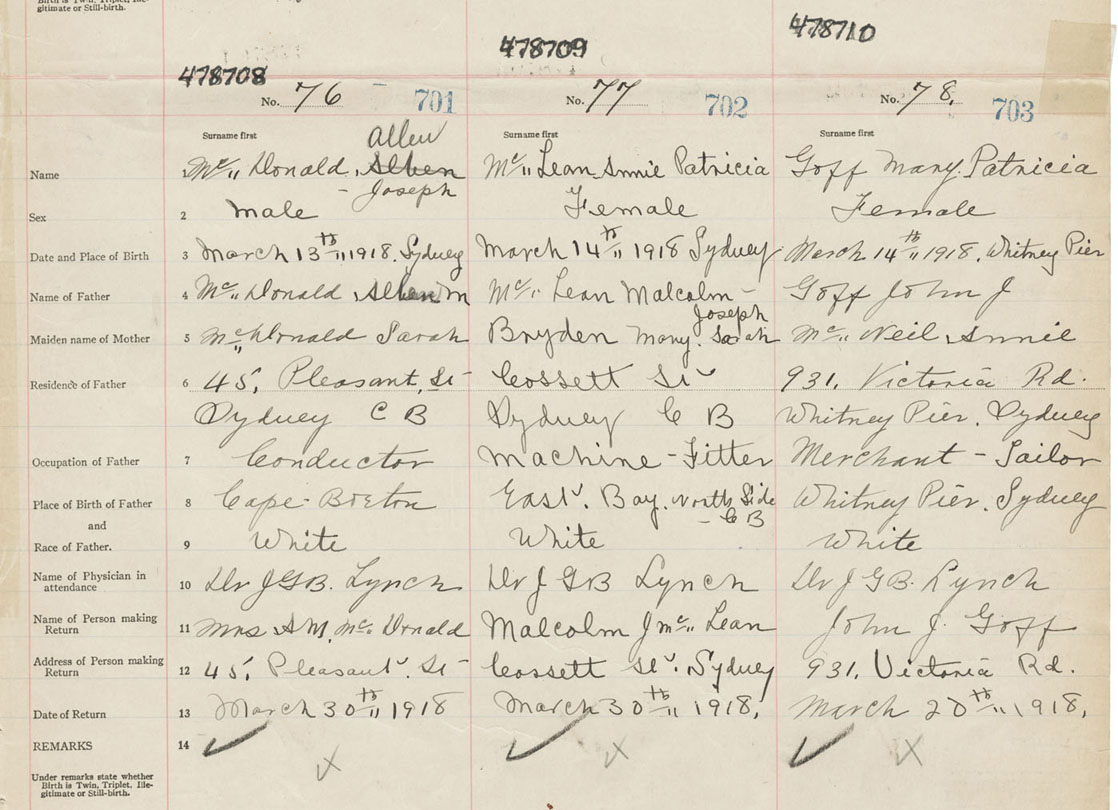 Birth is Twin, Triplet, Ille-
gitimate or Still-birth.
478708 478709 478710
No. 76 701 No. 77 702 No. 78. 703
Surname first Surname first Surname first
Allen
Name 1 Mc Donald, Alben Mc Lean Annie Patricia Goff Mary Patricia
- Joseph
Sex 2 Male Female Female
Date and Place of Birth 3 March 13th 1918. Sydney March 14th 1918 Sydney March 14th 1918. Whitney Pier
Name of Father 4 Mc Donald M Mc Lean Malcolm - Goff John J
Joseph
Maiden name of Mother 5 McDonald Sarah Bryden Mary Sarah Mc Neil Annie
Residence of Father 6 45, Pleasant. St Cossett St 931, Victoria Rd.
Sydney C B Sydney C B Whitney Pier. Sydney
Occupation of Father 7 Conductor Machine-Fitter Merchant - Tailor
Place of Birth of Father 8 Cape-Breton East Bay. North Side Whitney Pier. Sydney
- C B
and
Race of Father. 9 White White White
Name of Physician in
attendance 10 Dr J G B. Lynch Dr J G B Lynch Dr J G B. Lynch
Name of Person making
Return 11 Mrs A M. Mc Donald Malcolm J Mc Lean John J. Goff
Address of Person making
Return 12 45, Pleasant St Cossett St. Sydney 931, Victoria Rd.
Date of Return 13 March 30th 1918 March 30th 1918, March 20th 1918,
REMARKS 14
Under remarks state whether
Birth is Twin, Triplet, Ille-
gitimate or Still-birth.